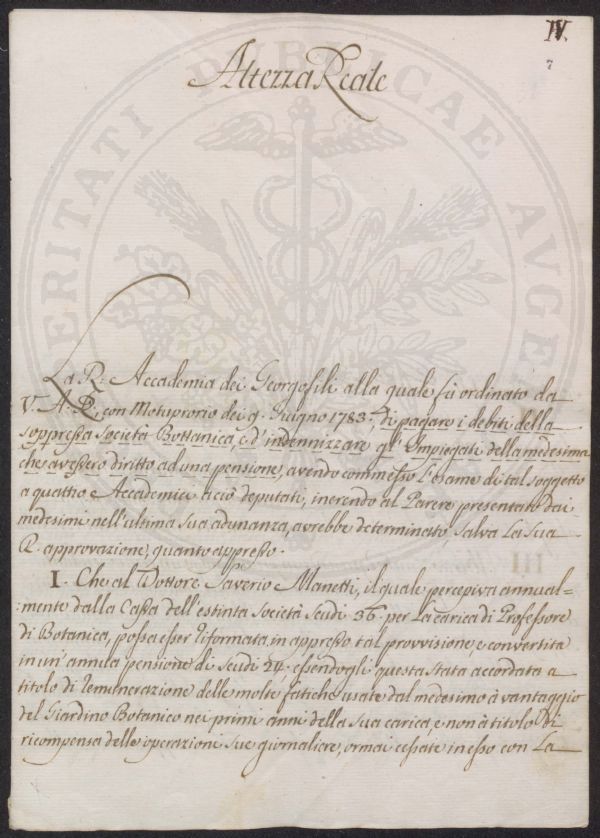 IV.
7
Altezza Reale
PUBLICAE
AUGE
PERITATI
La R: Accademia dei Georgofili alla quale fù ordinato da
V. A: R. con Motuprorio dei 9. Giugno 1783. di pagare i debiti della
soppressa Società Bottanica, e d'indennizzare gl'Impiegati della medesima
che avessero diritto ad una pensione, avendo commesso l'esame di tal soggetto
a quattro Accademici a ciò deputati, inerendo al Parere presentato dai
medesimi nell'ultima sua adunanza, avrebbe determinato, salva la sua
R. approvazione, quanto appresso.
I. Che al Dottore Saverio Manetti, il quale percepiva annual=
=mente dalla Cassa dell'estinta Società Scudi 36. per la carica di Professore
di Botanica, possa esser riformata in appresso tal provvisione, e convertita
in un'annua pensione di Scudi 24. essendogli questa stata accordata a
titolo di remunerazione delle molte fatiche usate dal medesimo à vantaggio
del Giardino Botanico nei primi anni della sua carica, e non à titolo di
ricompensa delle operazioni sue giornaliere, ormai cessate in esso con la